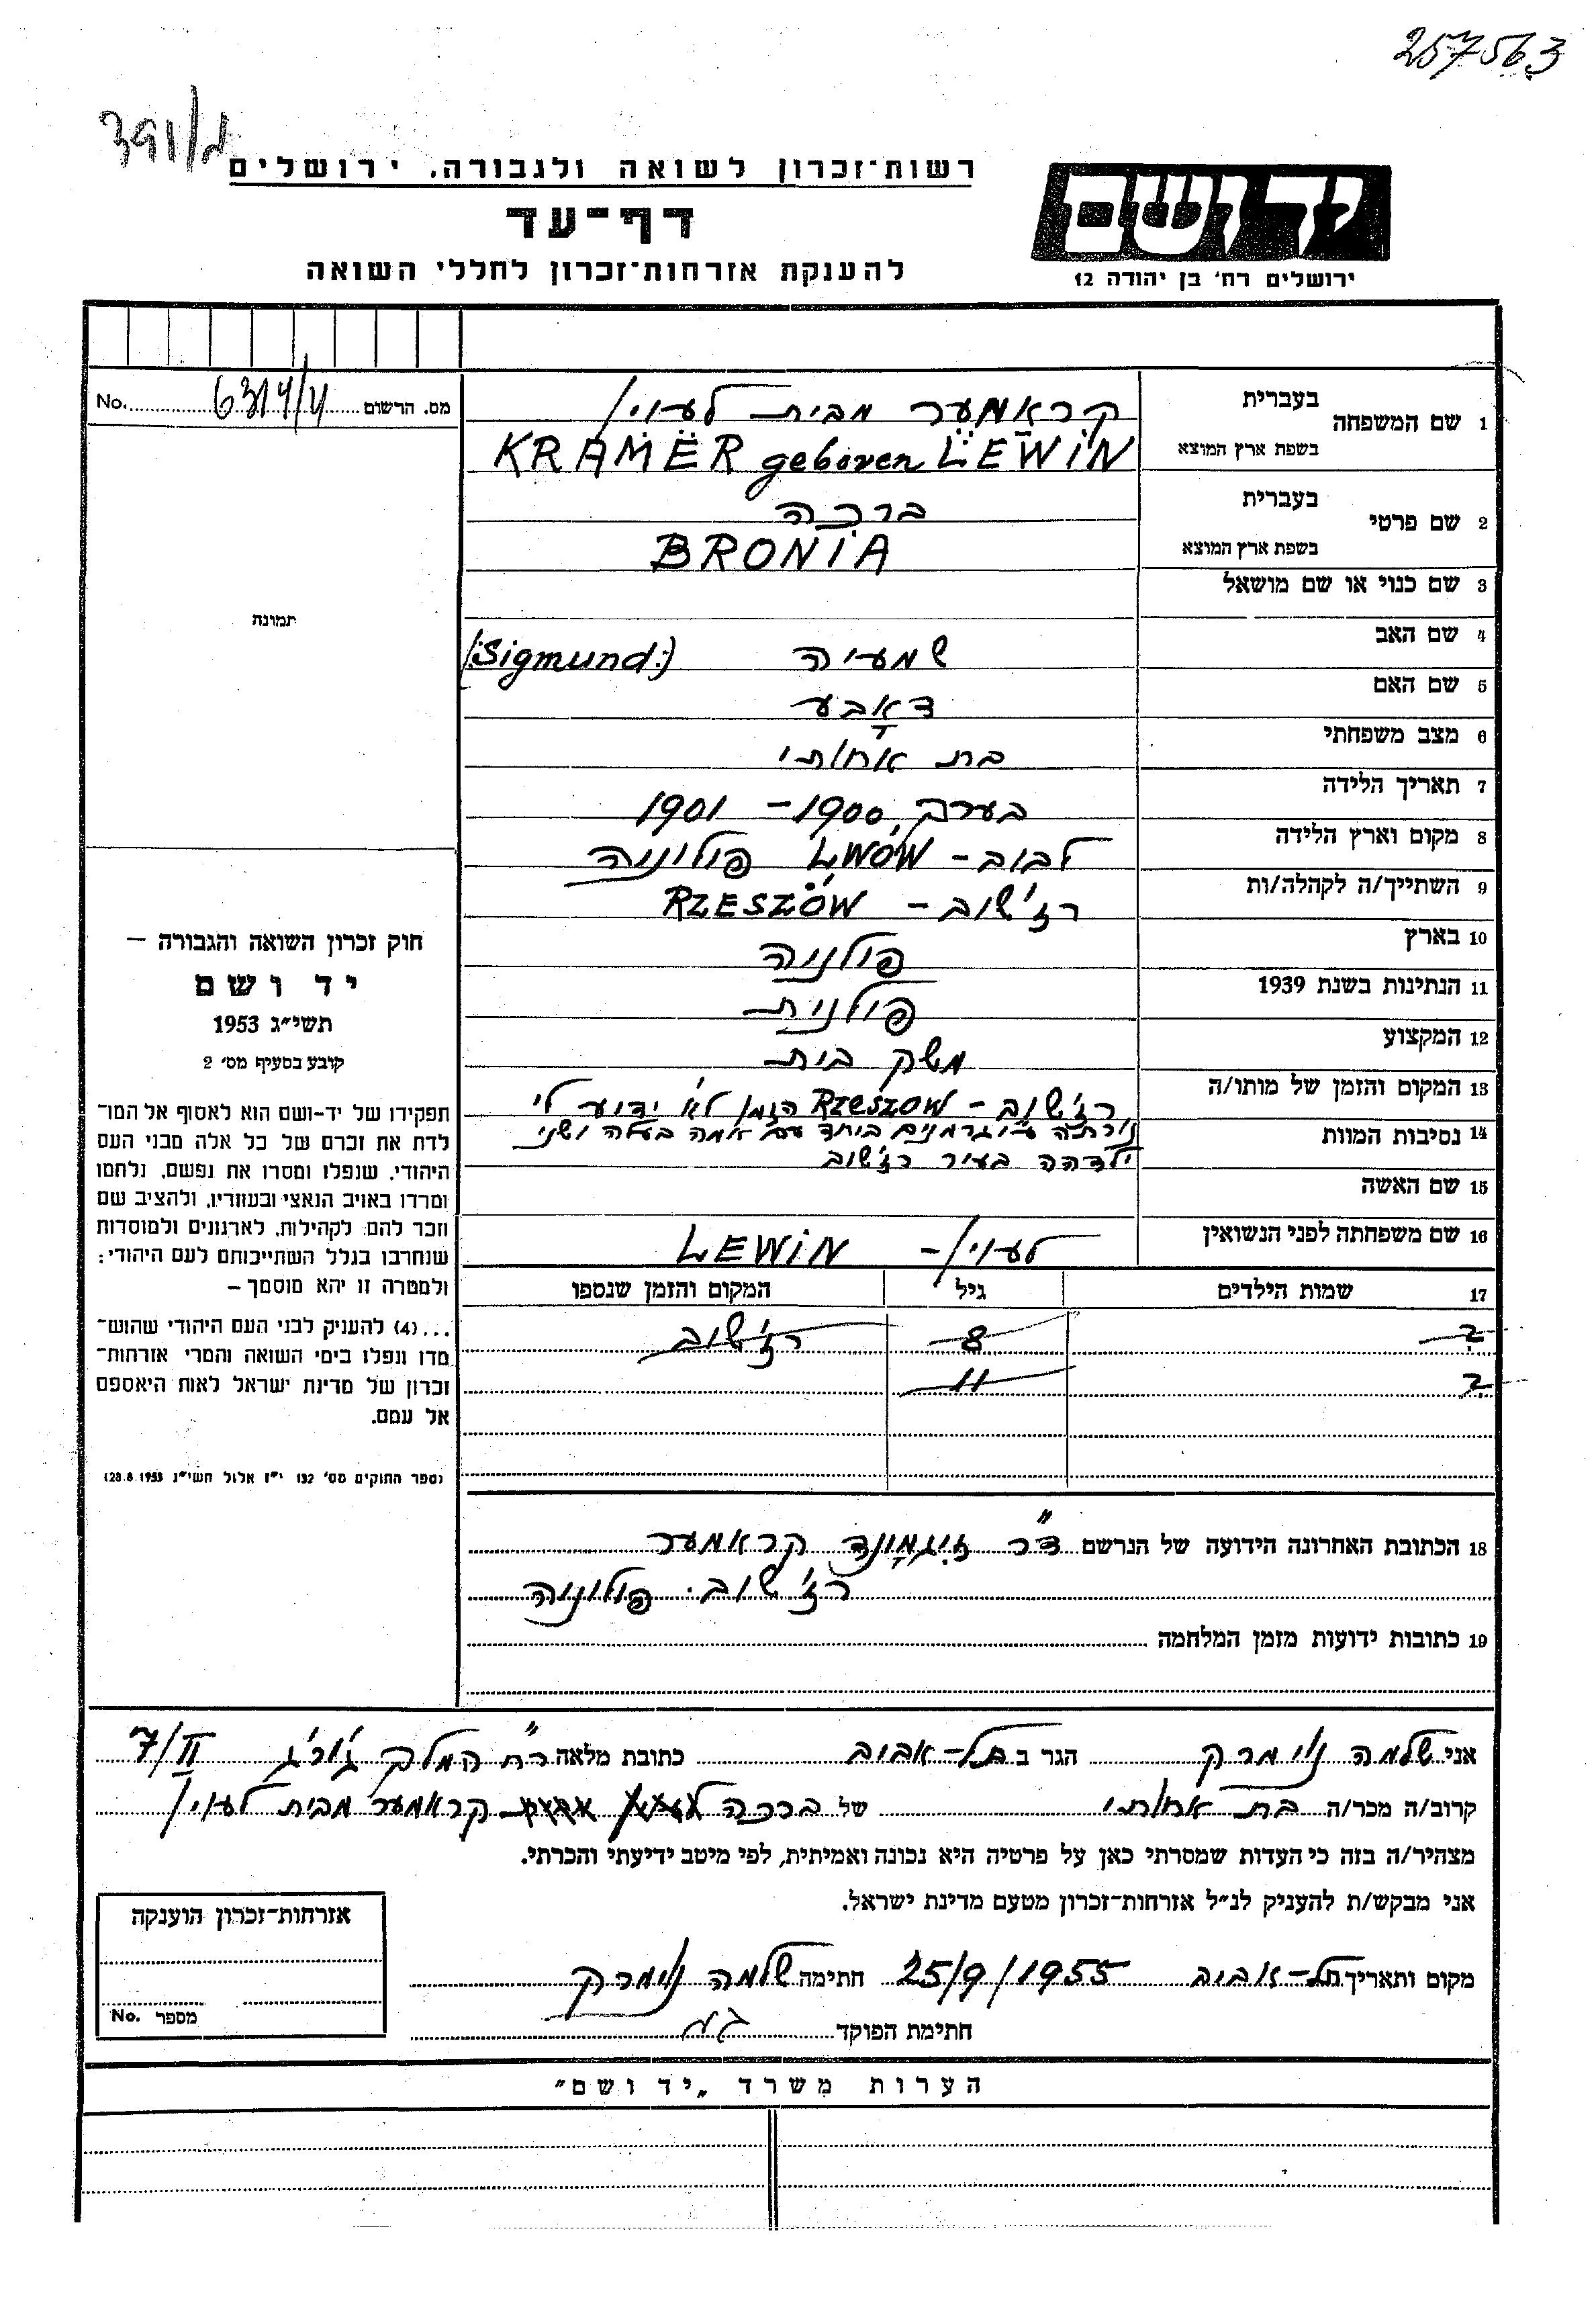 257563
391/מ
רשות־זכרון לשואה ולגבורה, ירושלים
דף־עד
להענקת אזרחות־זכרון לחללי השואה
יד ושם
ירושלים רח' בן יהודה 12
מס. הרשום 6314/4 No.
1 שם המשפחה
בעברית קראמער מבית לעוין
בשפת ארץ המוצא KRAMËR geboren LËWIN
2 שם פרטי
בעברית ברכה
בשפת ארץ המוצא BRONIA
3 שם כנוי או שם מושאל
4 שם האב שמעיה (Sigmund:)
5 שם האם דאבע
6 מצב משפחתי בת אחותי
7 תאריך הלידה בערך 1900 – 1901
8 מקום וארץ הלידה לבוב – LWÓW פולוניה
9 השתייך/ה לקהלה/ות רז'שוב – RZESZÓW
10 בארץ פולניה
11 הנתינות בשנת 1939 פולנית
12 המקצוע משק בית
13 המקום והזמן של מותו/ה רז'שוב – RZESZOW הזמן לא ידוע לי
14 נסיבות המוות נורתה ע"י גרמנים ביחד עם אמה בעלה ושני
ילדהה בעיר רז'שוב
15 שם האשה
16 שם משפחתה לפני הנשואין לעוין – LEWIN
17 שמות הילדים גיל המקום והזמן שנספו
? 8 רז'שוב
? 11
18 הכתובת האחרונה הידועה של הנרשם ד"ר זיגמונד קראמער
רז'שוב. פולוניה
19 כתובות ידועות מזמן המלחמה
תמונה
חוק זכרון השואה והגבורה –
יד ושם
תשי״ג 1953
קובע בסעיף מס' 2
תפקידו של יד-ושם הוא לאסוף אל המו־
לדת את זכרם של כל אלה מבני העם
היהודי, שנפלו ומסרו את נפשם, נלחמו
ומרדו באויב הנאצי ובעוזריו, ולהציב שם
וזכר להם, לקהילות, לארגונים ולמוסדות
שנחרבו בגלל השתייכותם לעם היהודי;
ולמטרה זו יהא מוסמך –
...(4) להעניק לבני העם היהודי שהוש־
מדו ונפלו בימי השואה והמרי אזרחות־
זכרון של מדינת ישראל לאות היאספם
אל עמם.
(ספר החוקים מס' 132 י״ז אלול תשי״ג 28.8.1953)
אני שלמה ניימרק הגר ב תל-אביב כתובת מלאה רח' המלך ג'ורג' 7/II
קרוב/ה מכר/ה בת אחותי של ברכה קראמער מבית לעוין
מצהיר/ה בזה כי העדות שמסרתי כאן על פרטיה היא נכונה ואמיתית, לפי מיטב ידיעתי והכרתי.
אני מבקש/ת להעניק לנ״ל אזרחות־זכרון מטעם מדינת ישראל.
מקום ותאריך תל-אביב 25/9/1955 חתימה שלמה ניימרק
חתימת הפוקד
אזרחות־זכרון הוענקה
מספר No.
הערות משרד „יד ושם״